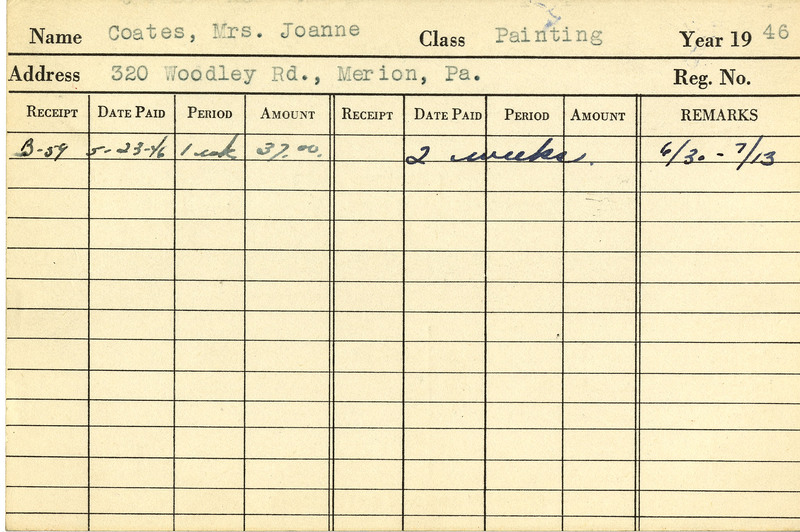 Name Coates, Mrs. Joanne Class Painting Year 19 46
Address 320 Woodley Rd., Merion, Pa. Reg. No.
RECEIPT DATE PAID PERIOD AMOUNT RECEIPT DATE PAID PERIOD AMOUNT REMARKS
B-59 5-23-46 1 wk 37.00. 2 weeks. 6/30 - 7/13